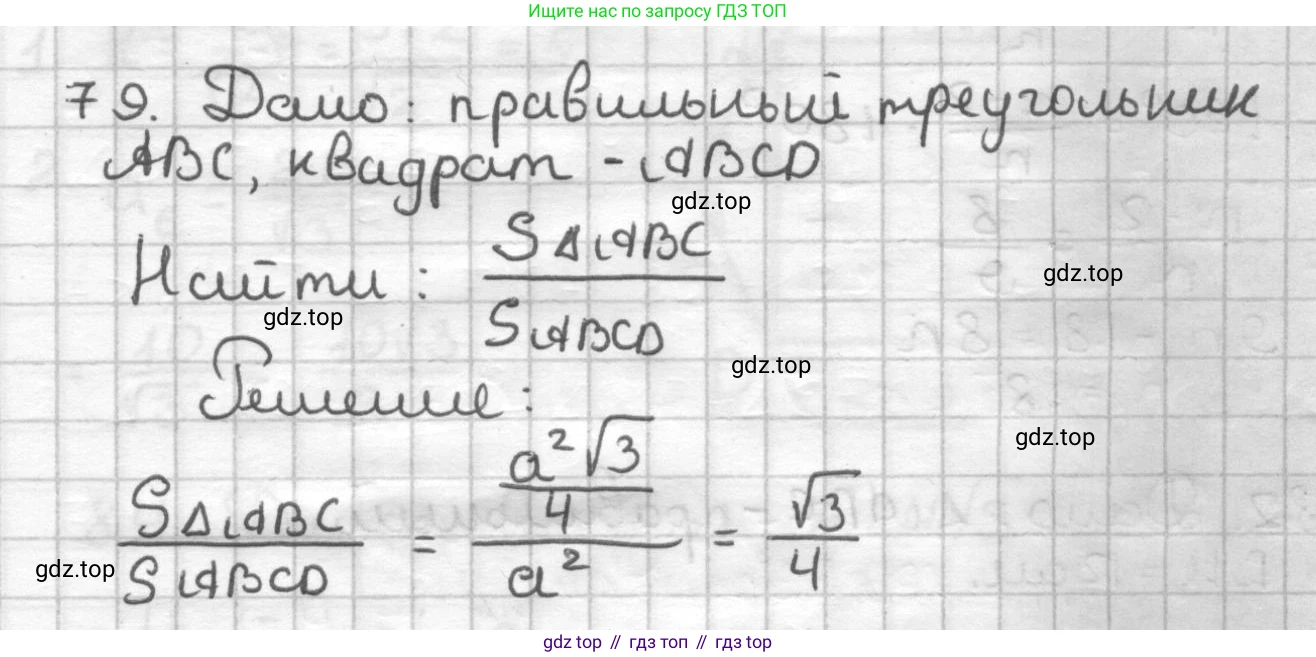 Ищите нас по запросу ГДЗ ТОП
79. Дано: правильный треугольник
ABC, квадрат - ABCD
gdz.top
Найти: S△ABC / SABCD
gdz.top
gdz.top
gdz.top
Решение:
gdz.top
S△ABC / SABCD = (a²√3 / 4) / a² = √3 / 4
gdz.top
gdz top // гдз топ // gdz top